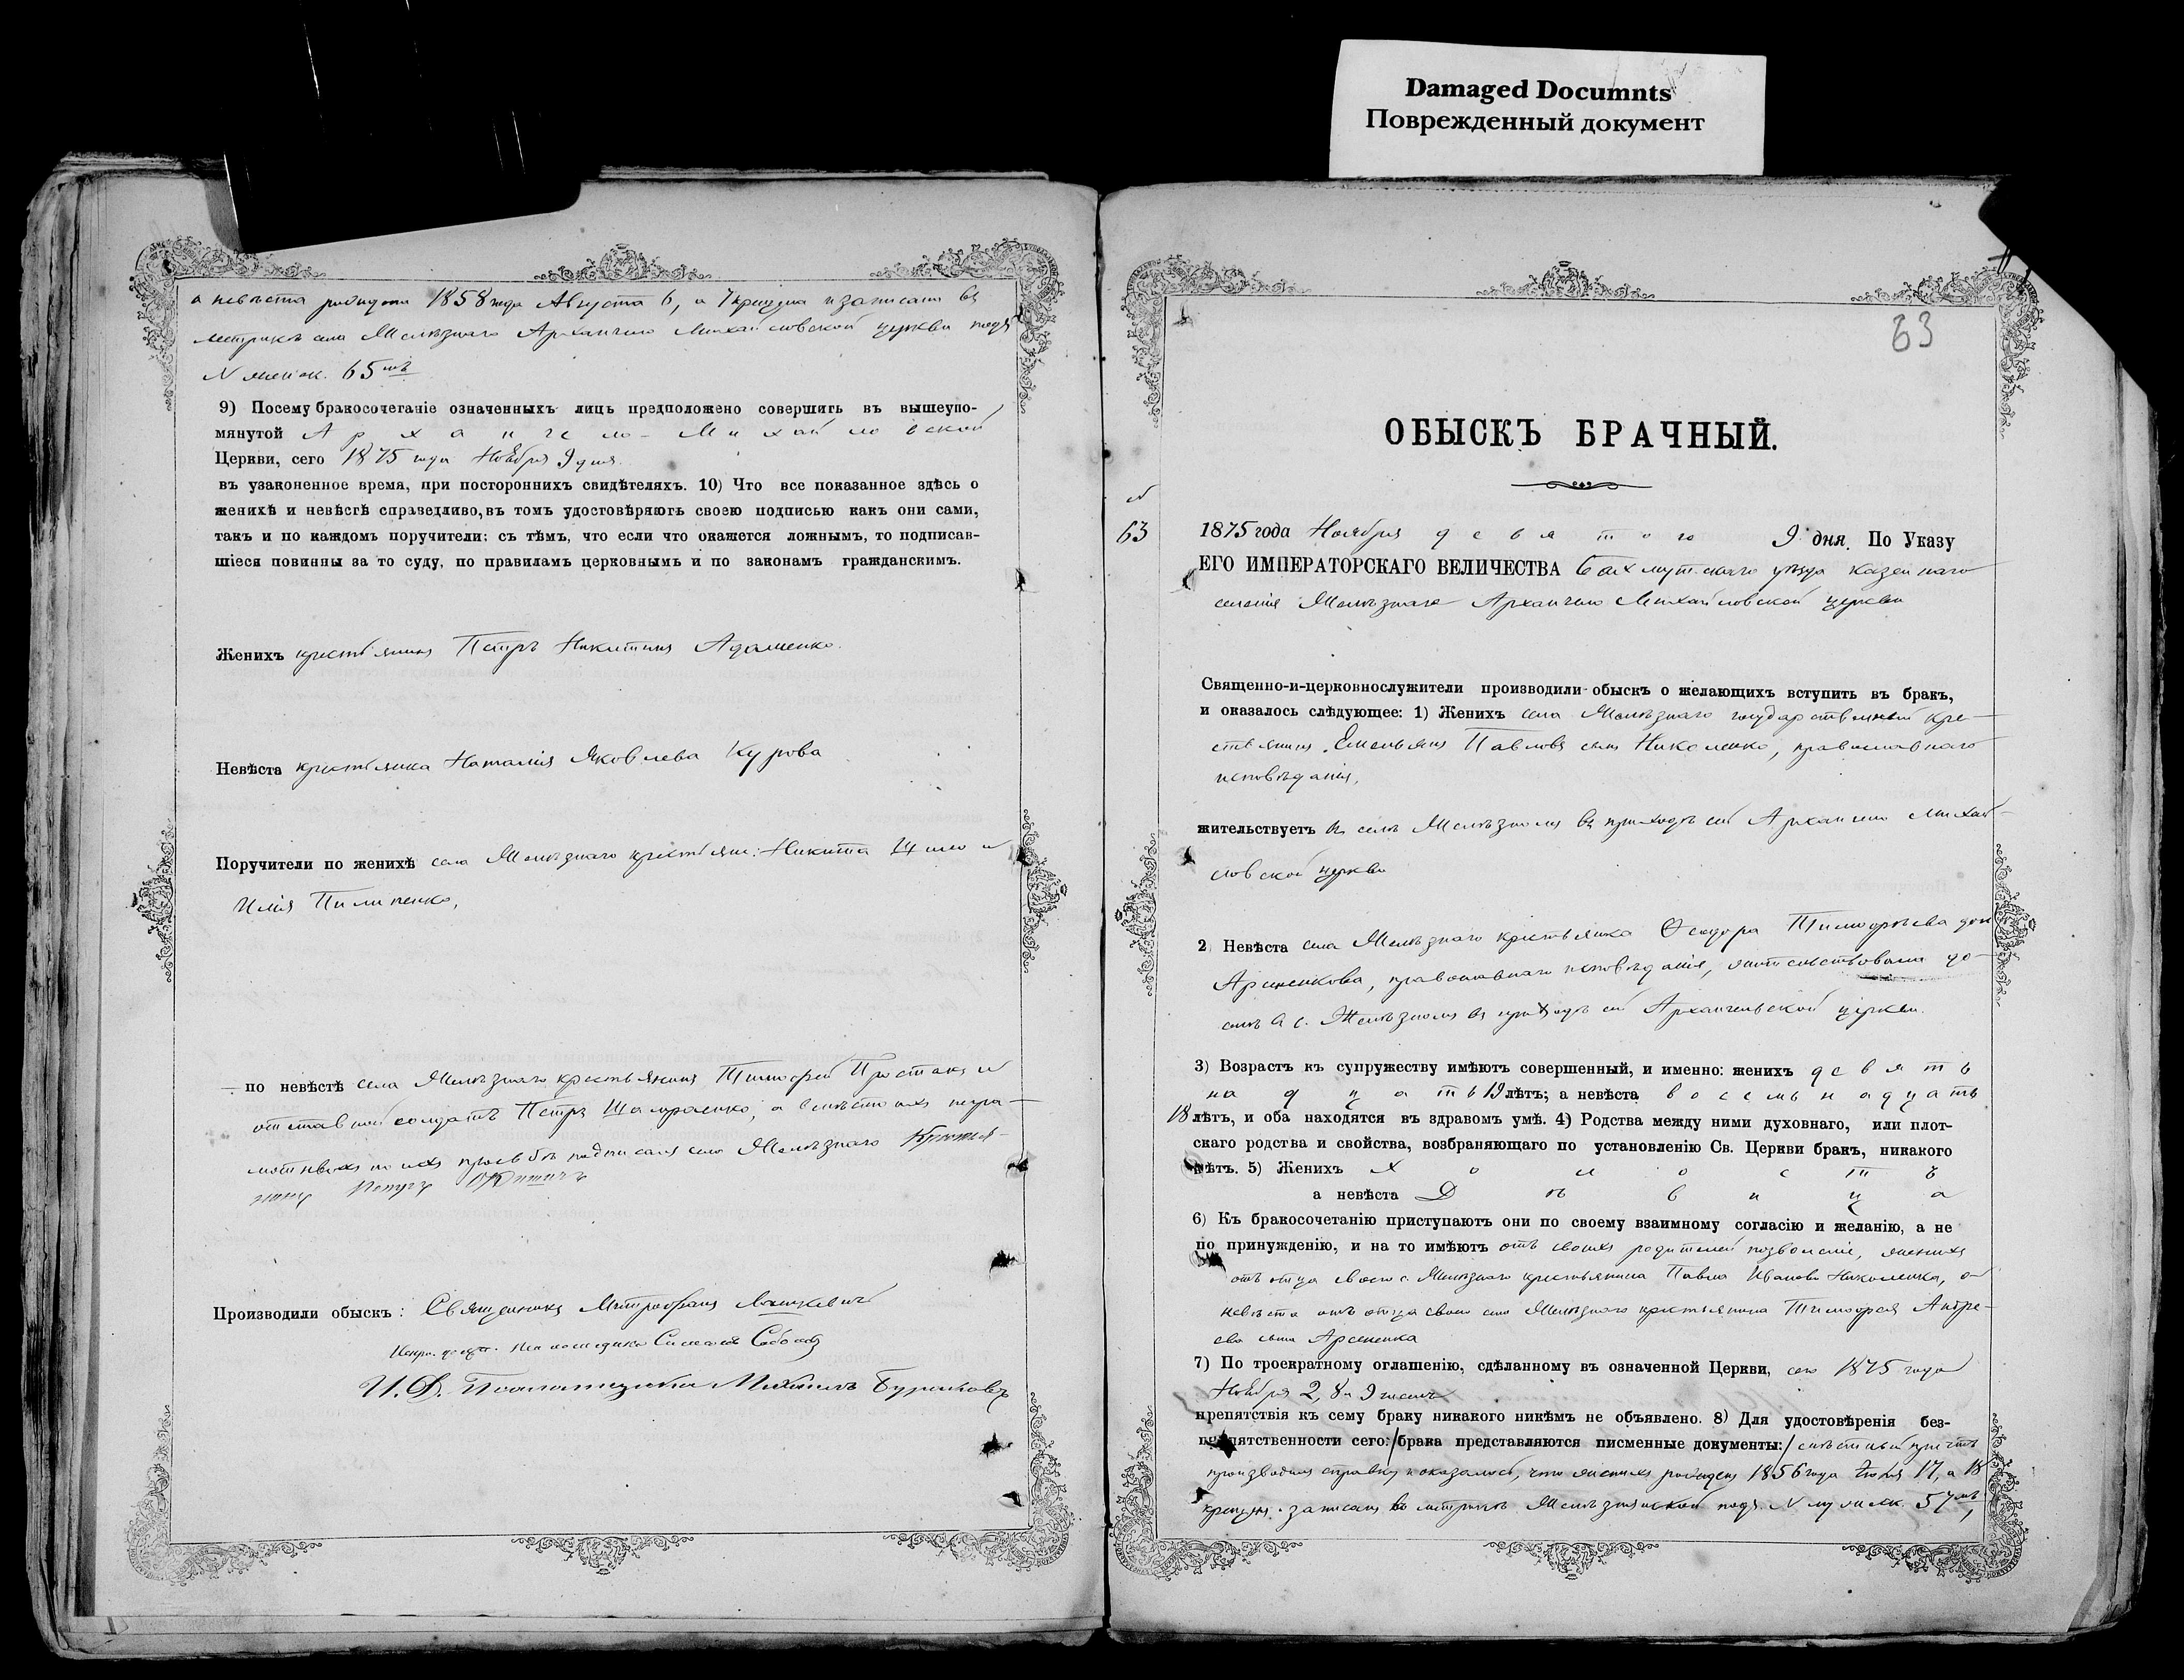 Damaged Documnts
Поврежденный документ
а невѣста рождена 1858 года Августа 6, а 7 крещена и записана въ
метрикѣ села Желѣзнаго Архангело Михайловской церкви подъ
N женск. 65мъ
9) Посему бракосочетаніе означенныхъ лицъ предположено совершить въ вышеупо-
мянутой Архангело-Михайловской
Церкви, сего 1875 года Ноября 9 дня.
въ узаконенное время, при постороннихъ свидѣтеляхъ. 10) Что все показанное здѣсь о
женихѣ и невѣстѣ справедливо, въ томъ удостовѣряютъ своею подписью какъ они сами,
такъ и по каждомъ поручители; съ тѣмъ, что если что окажется ложнымъ, то подписав-
шіеся повинны за то суду, по правиламъ церковнымъ и по законамъ гражданскимъ.
Женихъ крестьянинъ Петръ Никитинъ Адаменко.
Невѣста крестьянка Наталія Яковлева Курова
Поручители по женихѣ села Желѣзнаго крестьяне: Никита и
Илія Пилипенко,
по невѣстѣ села Желѣзнаго крестьянинъ Тимофей Простакъ и
отставной солдатъ Петръ а вмѣсто ихъ негра-
мотныхъ по ихъ просьбѣ подписался села Желѣзнаго
Производили обыскъ: Священникъ Митрофанъ
И. Д. Псаломщика Михаилъ
63
ОБЫСКЪ БРАЧНЫЙ.
N
63
1875 года Ноября девятого 9 дня. По Указу
ЕГО ИМПЕРАТОРСКАГО ВЕЛИЧЕСТВА Бахмутскаго уѣзда казеннаго
селенія Желѣзнаго Архангело Михайловской церкви
Священно-и-церковнослужители производили обыскъ о желающихъ вступить въ бракъ,
и оказалось слѣдующее: 1) Женихъ села Желѣзнаго государственный кре-
стьянинъ Емельянъ Павловъ сынъ Николенко, православнаго
исповѣданія,
жительствуетъ въ селѣ Желѣзномъ въ приходѣ сей Архангело Михай-
ловской церкви
2) Невѣста села Желѣзнаго крестьянка Ѳеодора Тимофѣева дочь
Арсенкова, православнаго исповѣданія, жительствовала до-
селѣ въ с. Желѣзномъ въ приходѣ сей Архангельской церкви.
3) Возрастъ къ супружеству имѣютъ совершенный, и именно: женихъ девять
надцать 19 лѣтъ; а невѣста восемьнадцать
18 лѣтъ, и оба находятся въ здравомъ умѣ. 4) Родства между ними духовнаго, или плот-
скаго родства и свойства, возбраняющаго по установленію Св. Церкви бракъ, никакого
нѣтъ. 5) Женихъ Холостъ
а невѣста Дѣвица
6) Къ бракосочетанію приступаютъ они по своему взаимному согласію и желанію, а не
по принужденію, и на то имѣютъ отъ своихъ родителей позволеніе, женихъ
отъ отца своего с. Желѣзнаго крестьянина Павла Иванова Николенка, а
невѣста отъ отца своего села Желѣзнаго крестьянина Тимофея Андре-
ева сына Арсенка
7) По троекратному оглашенію, сдѣланному въ означенной Церкви, сего 1875 года
Ноября 2, 8 и 9 чиселъ
препятствія къ сему браку никакого никѣмъ не объявлено. 8) Для удостовѣренія без-
препятственности сего: /брака представляются писменные документы:/ мѣстный причтъ
производилъ справку и оказалось, что женихъ рожденъ 1856 года Іюля 17, а 18
крещенъ. записанъ въ метрикѣ Желѣзнянской подъ N мужск. 57мъ,